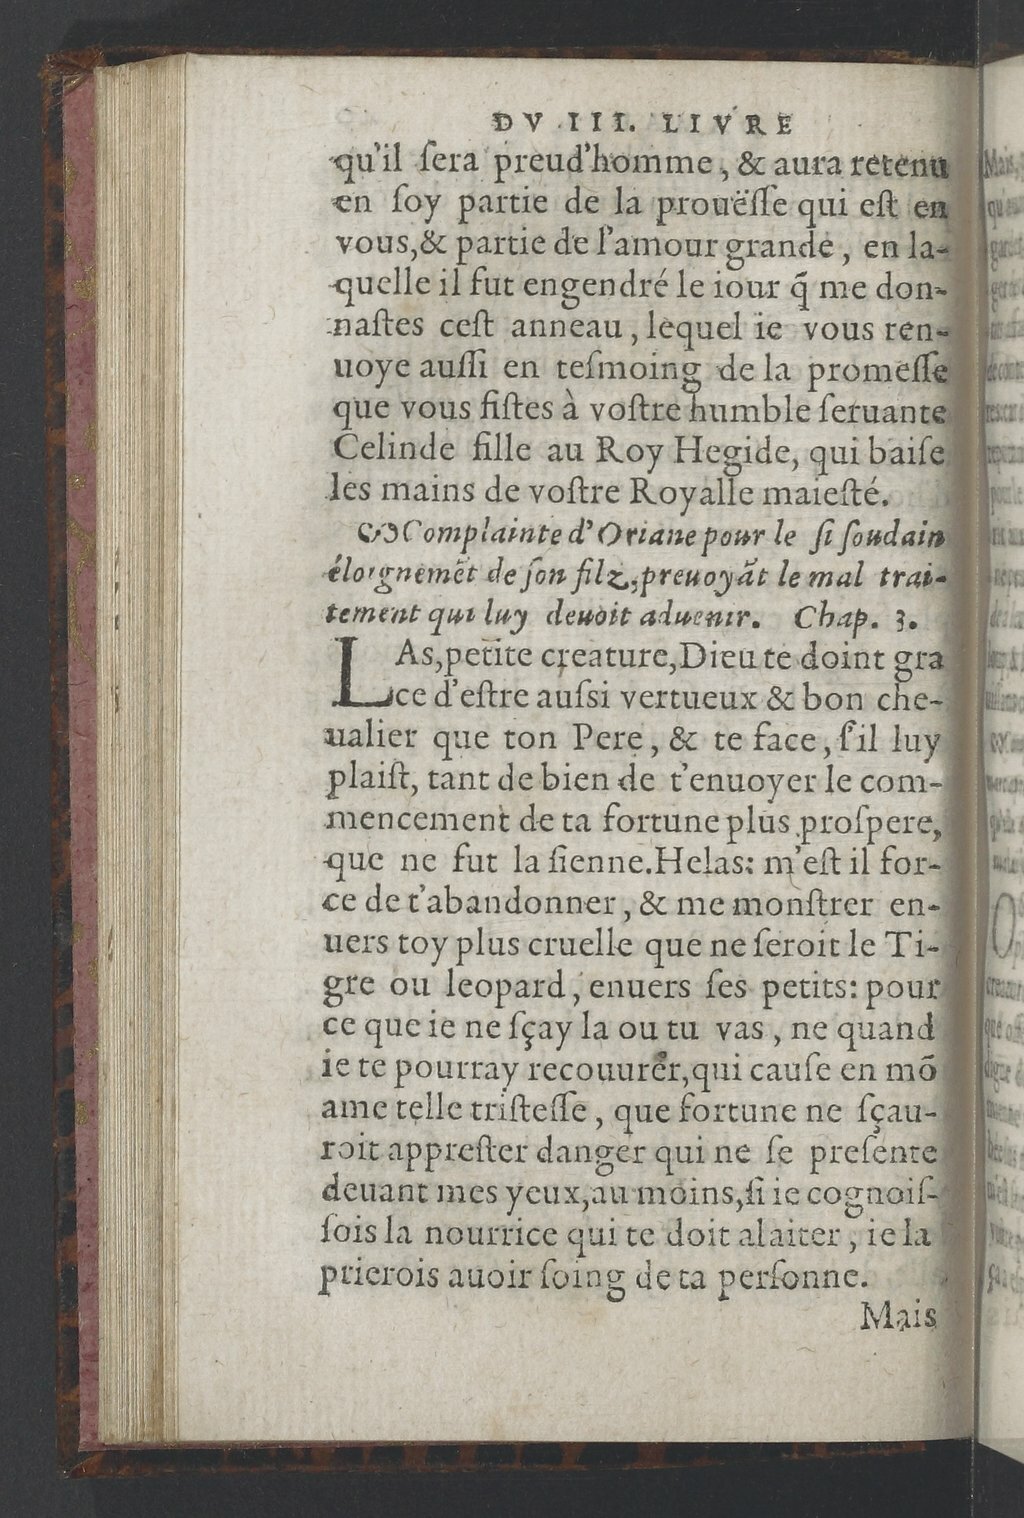 DV III. LIVRE
qu'il ſera preud'homme, & aura retenu
en ſoy partie de la prouëſſe qui eſt en
vous,& partie de l'amour grande, en la-
quelle il fut engendré le iour q̃ me don-
naſtes ceſt anneau, lequel ie vous ren-
uoye auſſi en teſmoing de la promeſſe
que vous fiſtes à voſtre humble ſeruante
Celinde fille au Roy Hegide, qui baiſe
les mains de voſtre Royalle maieſté.
Complainte d'Oriane pour le ſi ſoudain
éloignemẽt de ſon filz, preuoyãt le mal trai-
tement qui luy deuoit aduenir. Chap. 3.
LAs,petite creature,Dieu te doint gra
ce d'eſtre auſsi vertueux & bon che-
ualier que ton Pere, & te face, ſ'il luy
plaiſt, tant de bien de t'enuoyer le com-
mencement de ta fortune plus proſpere,
que ne fut la ſienne.Helas: m'eſt il for-
ce de t'abandonner, & me monſtrer en-
uers toy plus cruelle que ne ſeroit le Ti-
gre ou leopard, enuers ſes petits: pour
ce que ie ne ſçay la ou tu vas, ne quand
ie te pourray recouurer,qui cauſe en mõ
ame telle triſteſſe, que fortune ne ſçau-
roit appreſter danger qui ne ſe preſente
deuant mes yeux,au moins,ſi ie cognoiſ-
ſois la nourrice qui te doit alaiter, ie la
prierois auoir ſoing de ta perſonne.
Mais